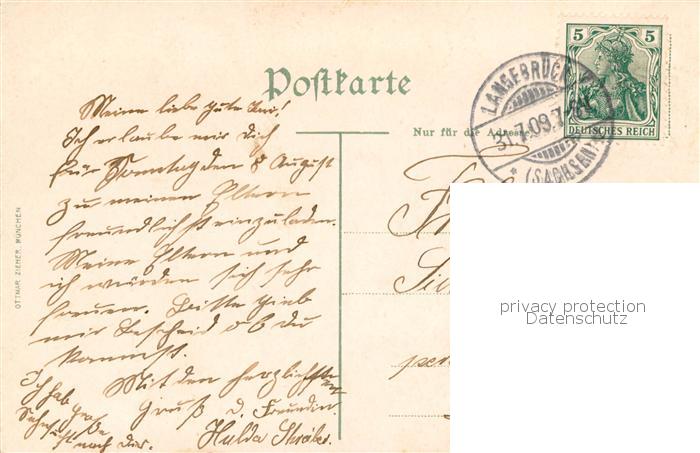 Postkarte
Nur für die Adresse.
Meine liebe gute
Ich erlaube mir dich
für Sonntag den 8 August
zu meinen Eltern
freundlichst einzuladen.
Meine Eltern und
ich würden sich sehr
freuen. Bitte gieb
mir Bescheid ob du
kannst.
Mit den herzlichsten
Gruß d. Freundin
Hulda
Ich hab
große
Sehnsucht nach dir.
OTTMAR ZIEHER, MÜNCHEN
LANGEBRÜCK
31.7.09.7-8V
* (SACHSEN)
5 5
DEUTSCHES REICH
privacy protection
Datenschutz